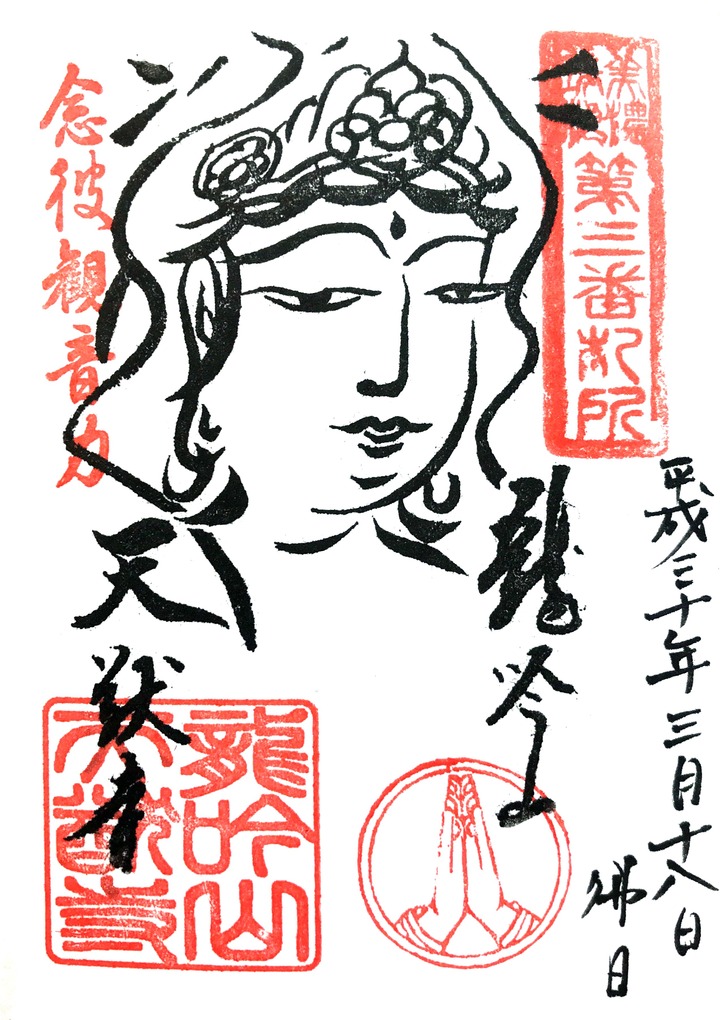 平成三十年三月十八日
佛日
美濃
第三番札所
龍吟山
天猷寺
念彼観音力
龍吟山
天猷寺